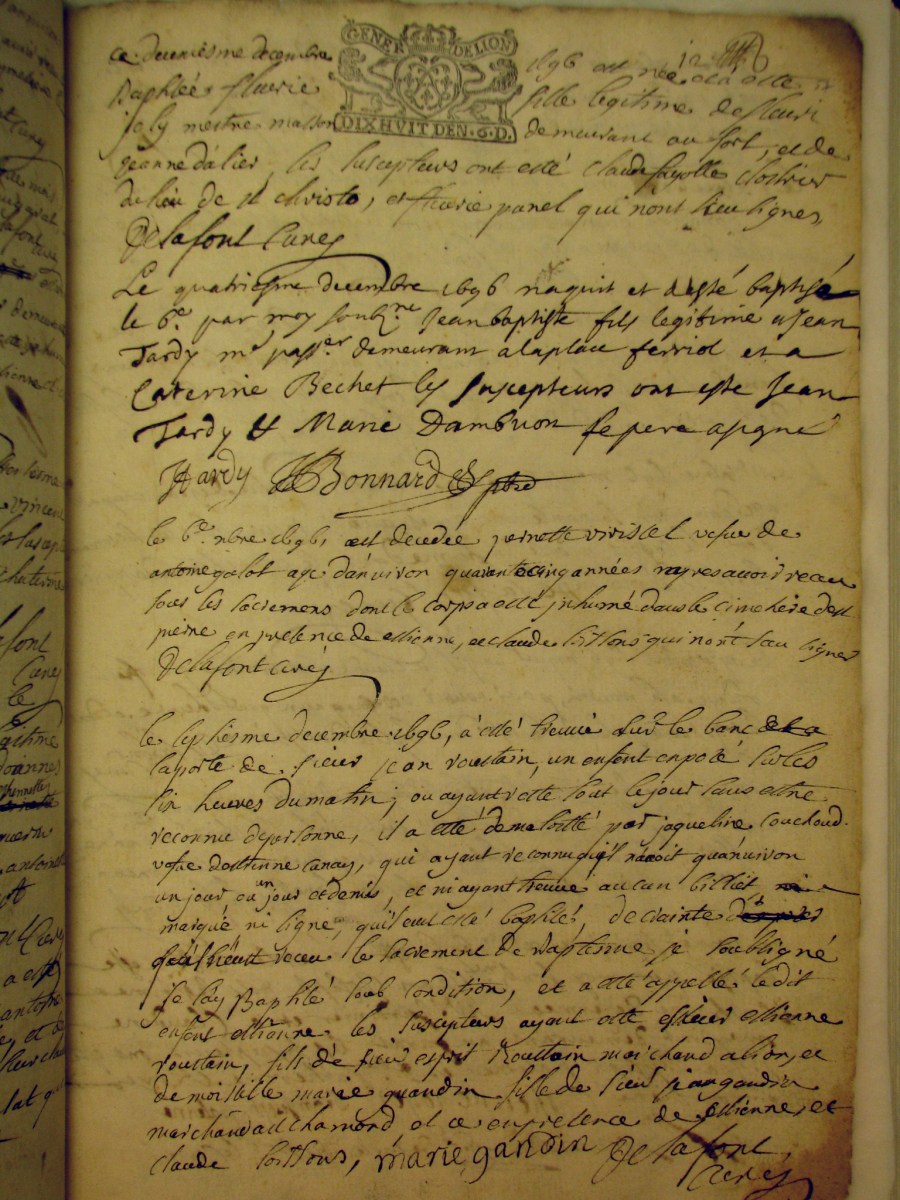 GENER DELION
DIXHUIT DEN. 6. D.
ce deuxiesme decembre 1696 est née et a esté
Baptisée fleurie fille legitime de fleuri
joly mestre masson demeurant au fort, et de
jeanne dalier, les suscepteurs ont esté claude fayolle
du lieu de st christo, et fleurie panel qui nont sceu signer
Delafont Curé
Le quatriesme decembre 1696 naquit et a esté baptisé
le 6e par moy soubzne Jean baptiste fils legitime a Jean
Tardy me passer demeurant a la place ferriol et a
Caterine Bechet les suscepteurs ont este Jean
Tardy & Marie Dambuon le pere a signé
Tardy Bonnard pbre
le 6e xbre 1696, est decedée pernette vefve de
antoine galot agé danuiron quarante cinq années apres avoir receu
tous les sacremens dont le corps a esté inhumé dans le cimetiere de st
pierre en presence de estienne, et claude qui nont sceu signer
Delafont curé
le septiesme decembre 1696, à esté treuué sur le banc de la
la porte de sieur jean roustain, un enfant exposé sur les
six heures du matin; ou ayant resté tout le jour sans estre
reconnu de personne, il a esté demaliotté par jaqueline couchoud
vefve destienne canay, qui ayant reconnu quil nauoit quanuiron
un jour ou un jour et demis, et n'ayant treuué aucun billiet,
marque ni signe, qu'il eut esté baptisé, de crainte
receu le sacrement de Baptesme je soubsigné
je l'ay Baptisé soub condition, et a esté appellé ledit
enfant estienne les suscepteurs ayant esté sieur estienne
roustain, fils de sieur esprit Roustain marchand a lion, et
demoiselle marie gaudin fille de sieur jean gaudin
marchand a st chamond et ce en presence de estienne, et
claude marie gaudin Delafont
Curé